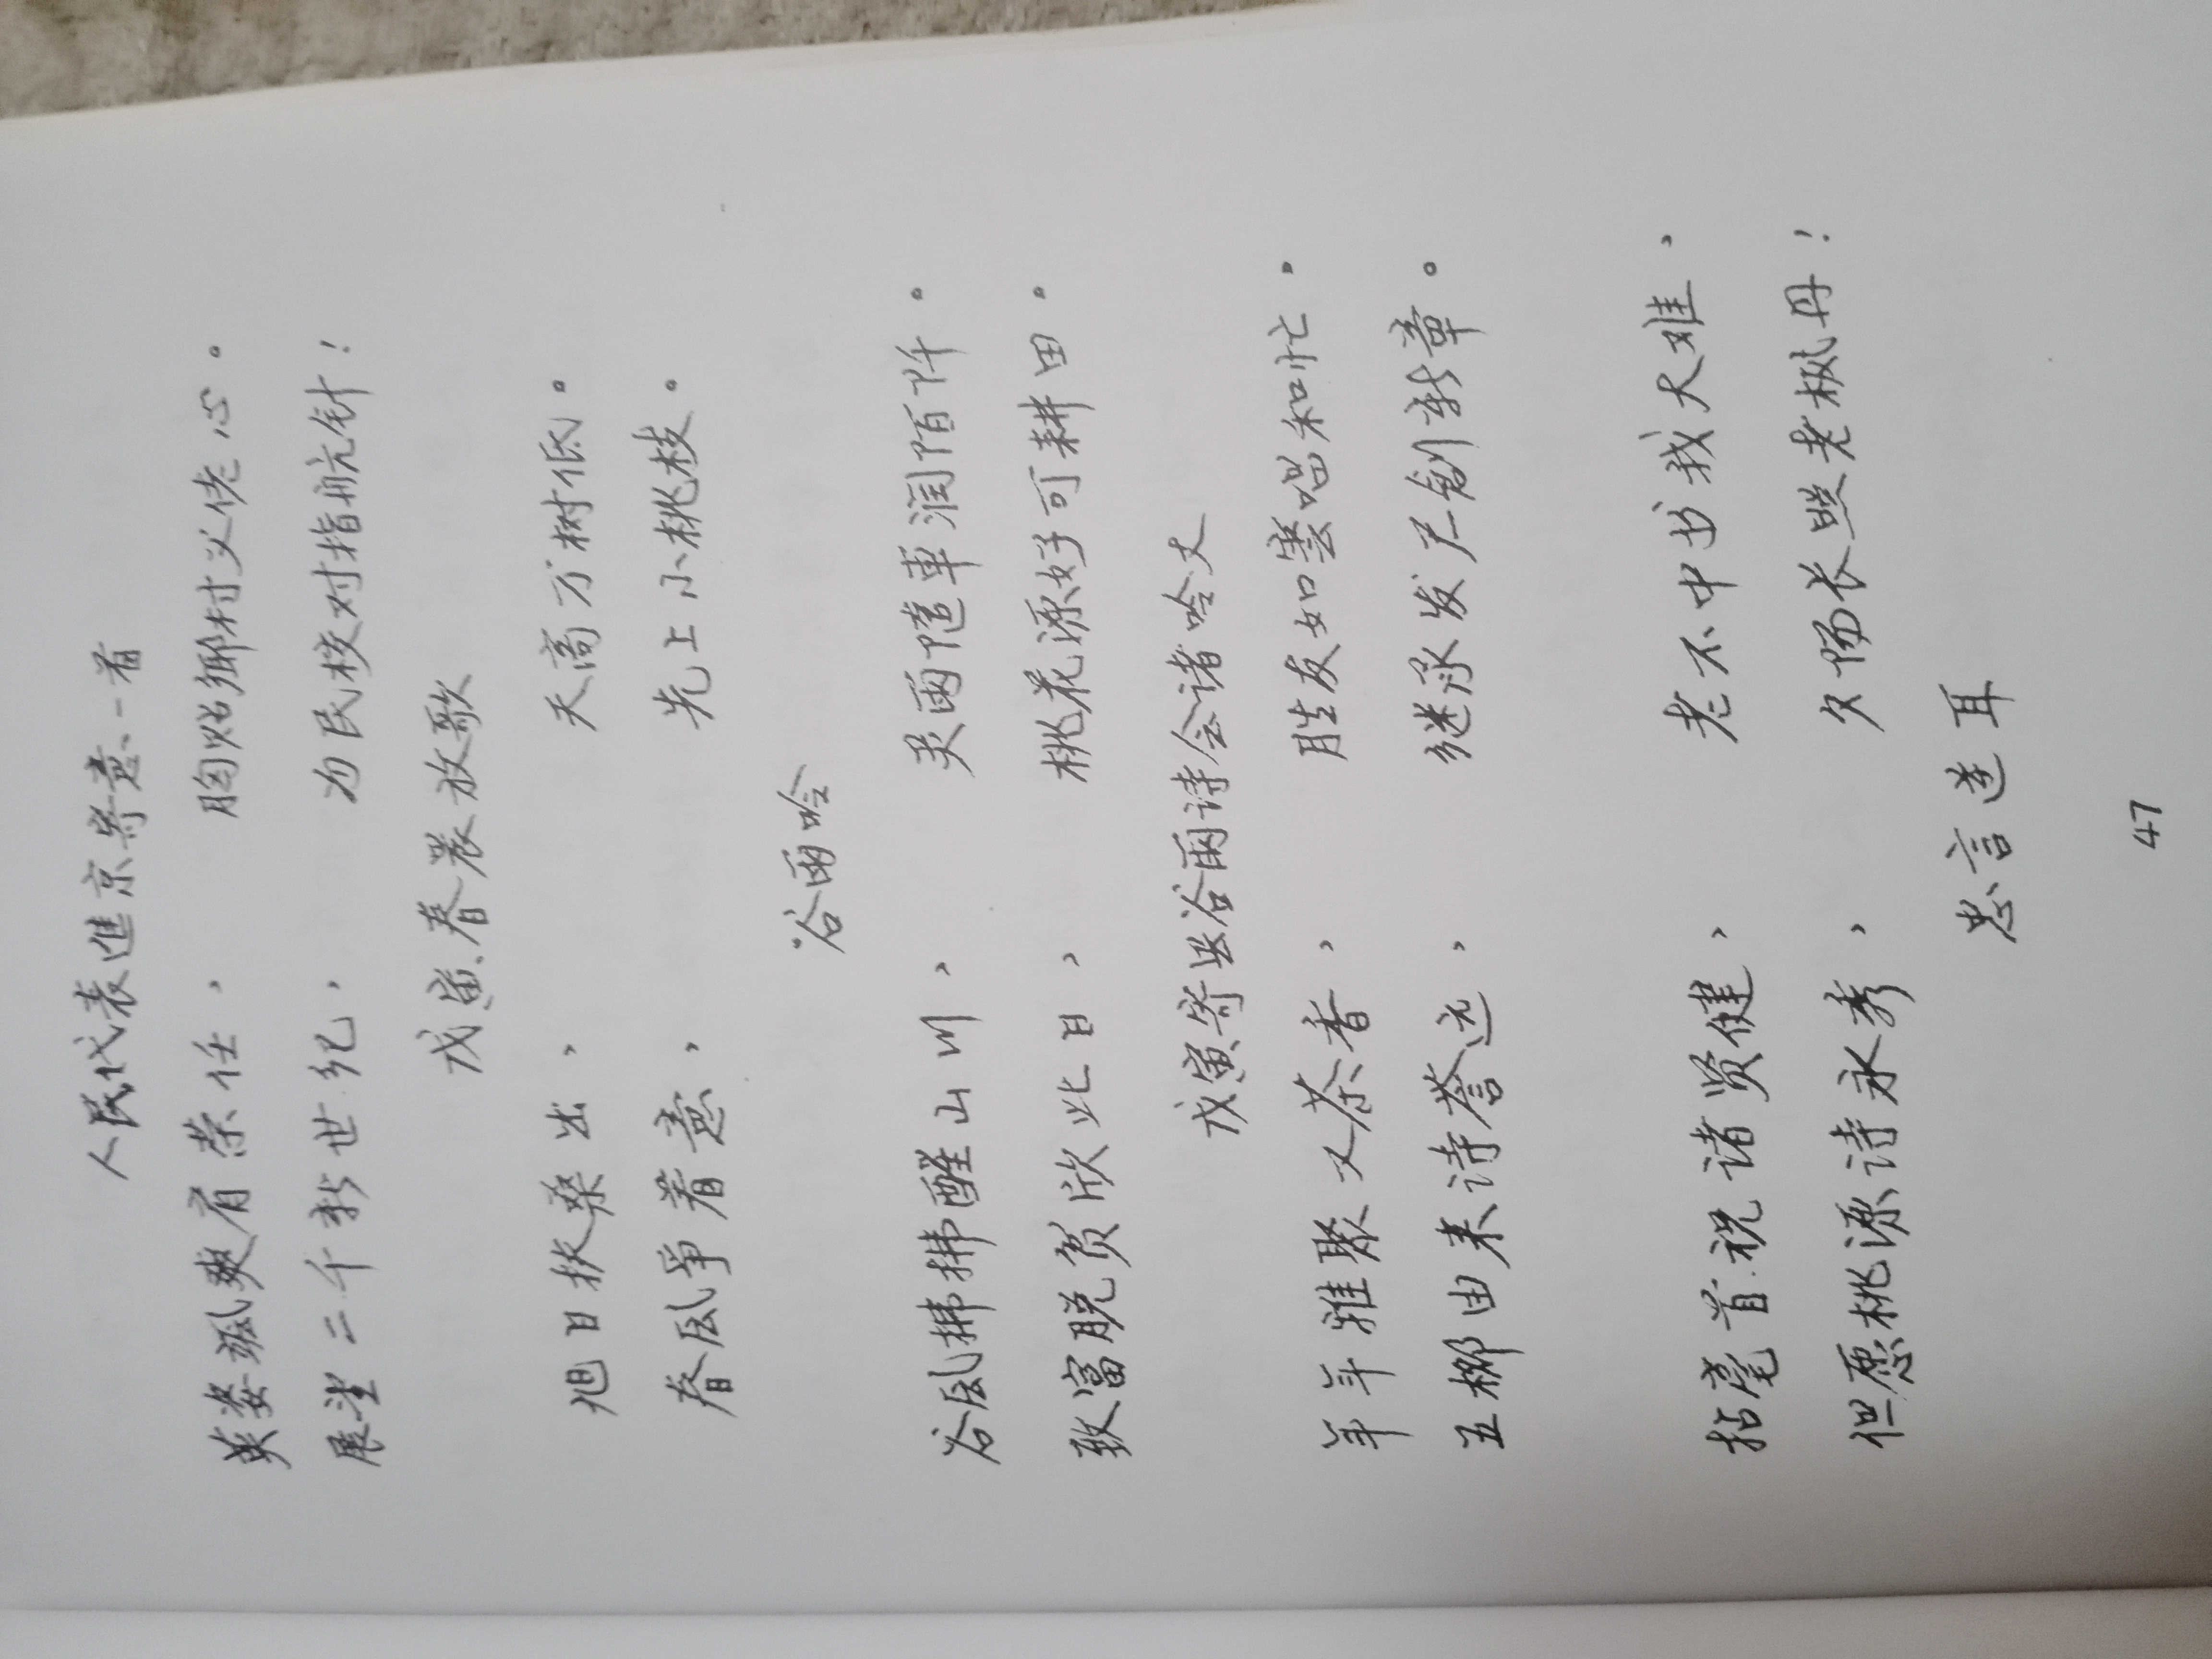 人民代表進京寄意一首
英姿飒爽肩荣任， 胸怀乡村父佬心。
展望二千新世纪， 为民校对指航针！
戊寅春晨放歌
旭日扶桑出， 天高万树低。
春风爭着意， 先上小桃枝。
谷雨吟
谷风拂拂醒山川， 灵雨随車润陌阡。
致富脱贫欣此日， 桃花源好可耕田。
戊寅寄呈谷雨诗会诸吟丈
年年雅聚又茶香， 胜友如 唱和忙。
五柳由来诗誉远， 继承发展创新章。
拈毫首祝诸贤健， 老不中书我大难，
但愿桃源诗永秀， 夕陽长照老枫丹！
忠言逆耳
47